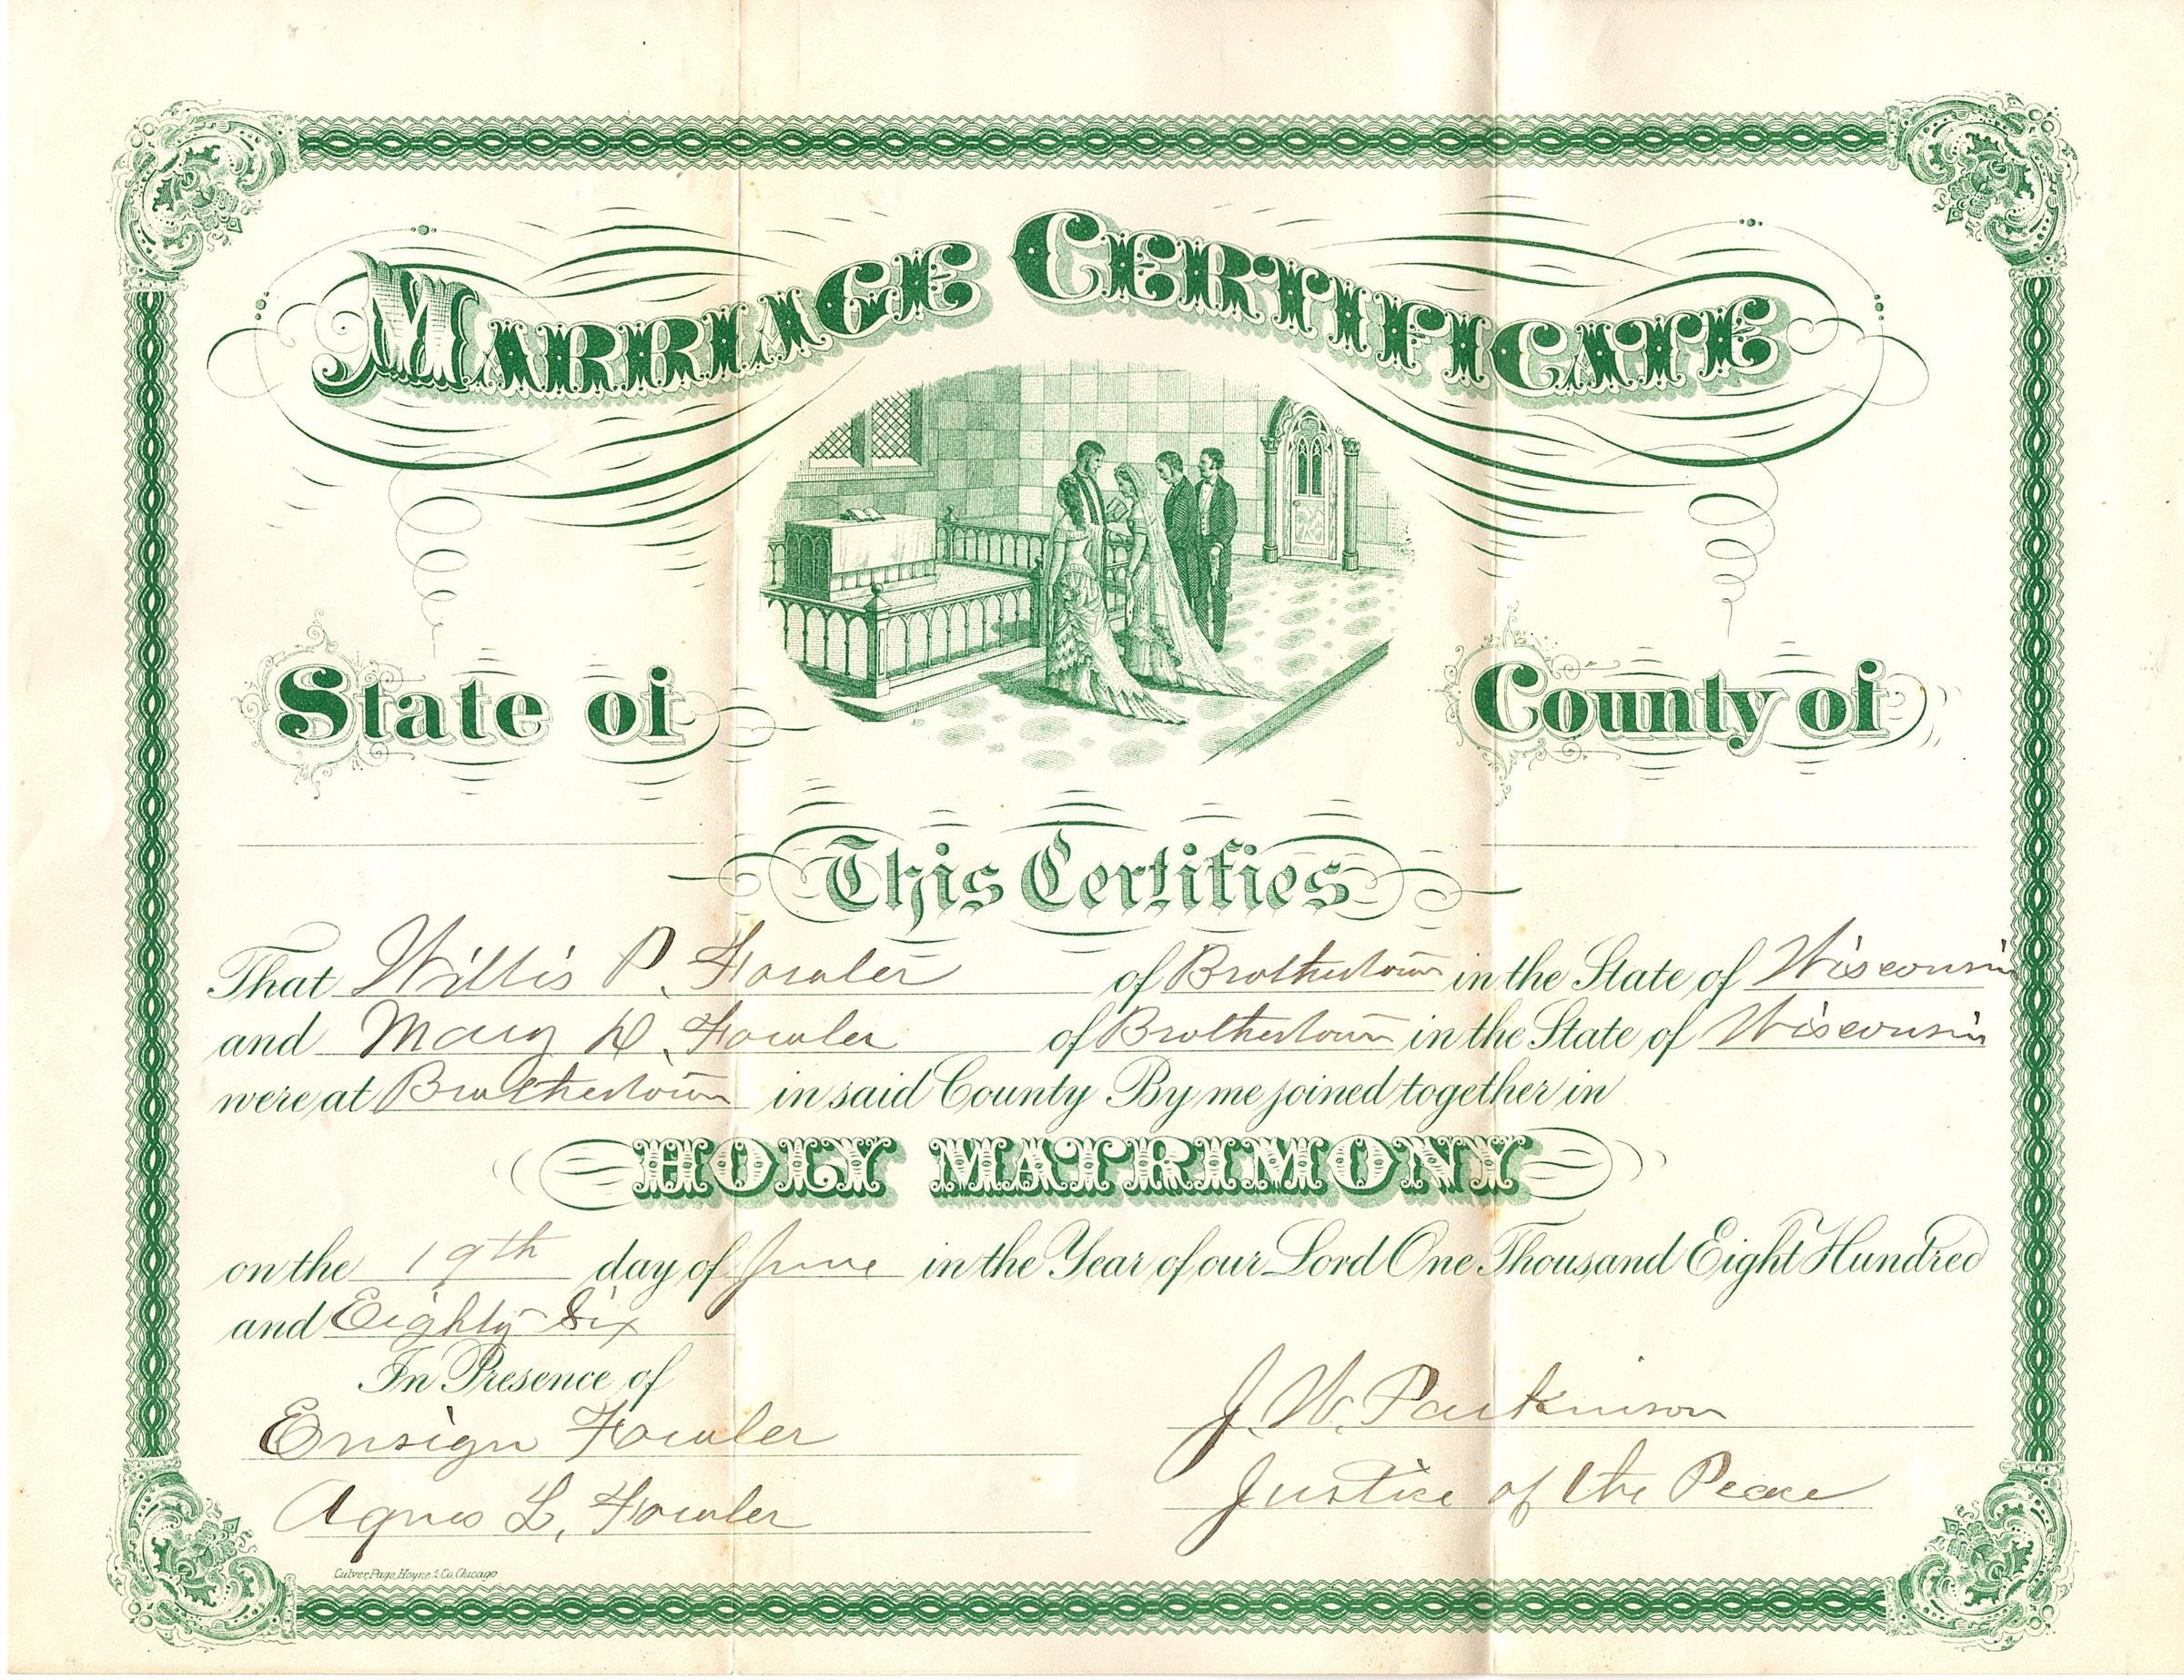 MARRIAGE CERTIFICATE
State of
County of
This Certifies
That Willis P. Fowler of Brothertown in the State of Wisconsin
and Mary D. Fowler of Brothertown in the State of Wisconsin
were at Brothertown in said County By me joined together in
HOLY MATRIMONY
on the 19th day of June in the Year of our Lord One Thousand Eight Hundred
and Eighty-Six
In Presence of
Ensign Fowler
J. W. Parkinson
Agnes L. Fowler
Justice of the Peace
Culver, Page, Hoyne & Co. Chicago